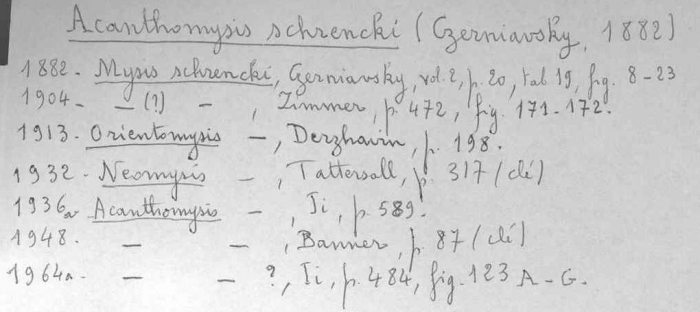 Acanthomysis schrencki (Czerniavsky, 1882)
1882- Mysis schrencki, Czerniavsky, vol. 2, p. 20, tab. 19, fig. 8-23
1904- — (?) — , Zimmer, p. 472, fig. 171-172.
1913- Orientomysis —, Derzhavin, p. 198.
1932- Neomysis — , Tattersall, p. 317 (clé)
1936a- Acanthomysis — , Ii, p. 589.
1948. — — , Banner, p. 87 (clé)
1964a. — — ?, Ii, p. 484, fig. 123 A-G.